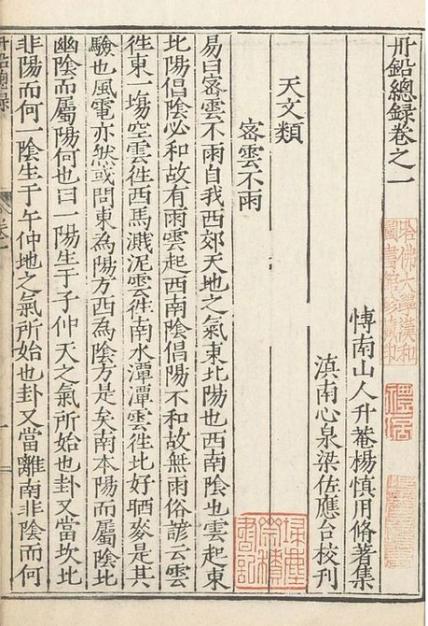 丹鉛總録卷之一
哈佛大學漢和
圖書館珍藏印
愽南山人升菴楊慎用脩著集
滇南心泉梁佐應台校刊
天文類
密雲不雨
易曰密雲不雨自我西郊天地之氣東北陽也西南陰也雲起東
北陽倡陰必和故有雨雲起西南陰倡陽不和故無雨俗諺云雲
徃東一塲空雲徃西馬濺泥雲徃南水潭潭雲徃北好晒麥是其
驗也風電亦然或問東為陽方西為陰方是矣南本陽而屬陰北
幽陰而屬陽何也曰一陽生于子仲天之氣所始也卦又當坎北
非陽而何一陰生于午仲地之氣所始也卦又當離南非陰而何